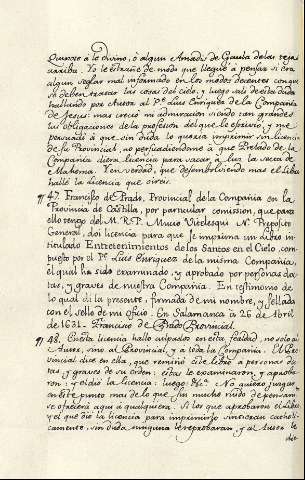 Quixote a lo divino, ò algun Amadis de Gaula de las tejas
arriba. Yo le estrañè de modo que lleguè à pensar si era
algun seglar mal informado en los modos decentes con que
se deben tratar las cosas del cielo, y luego salì de esta duda
hallando por Autor al P.e Luis Enriquez de la Compañia
de Jesus: mas creciò mi admiracion siendo tan grandes
las obligaciones de la profesion del que lo escribe, y me
persuadì à que sin duda lo queria imprimir sin licencia
de su Provincial, no persuadiendome à que Prelado de la
Compañia diera licencia para sacar à luz la secta de
Mahoma. Y en verdad, que desembolviendo mas el libro
hallè la licencia que oireis.
47. Francisco de Prado, Provincial de la Compañia en la
Provincia de Castilla, por particular comission, que para
ello tengo del M. R. P. Mucio Vitelesqui N.o Preposito
General, doi licencia para que se imprima un libro in-
titulado Entretenimientos de los Santos en el Cielo, com-
puesto por el P.e Luis Enriquez de la misma Compañia,
el qual ha sido examinado, y aprobado por personas doc-
tas, y graves de nuestra Compañia. En testimonio de
lo qual di la presente, firmada de mi nombre, y sellada
con el sello de mi oficio. En Salamanca à 26 de Abril
de 1631. Francisco de Prado Provincial.
48. En esta licencia hallo culpados en esta fealdad, no solo al
Autor, sino al Provincial, y a toda la Compañia. El Pro-
vincial dice en ella, que remitiò este libro a personas doc-
tas y graves de su orden: estas le examinaron, y aproba-
ron: y el diò la licencia: luego &c.a No quiero juzgar
en este punto mas de lo que sin mucho ruido de pensar
se ofrecerà aqui à qualquiera. Si los que aprobaron el libro
y el que diò la licencia para imprimirlo sintieran catholi-
camente, sin duda ninguna le reprobaran, y al Autor le
die-